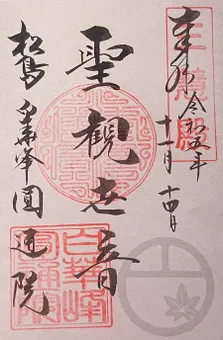 奉拝 令和五年
十一月十四日
三慧殿
聖観世音
松島 白華峰 圓通院
白華峰
圓通院